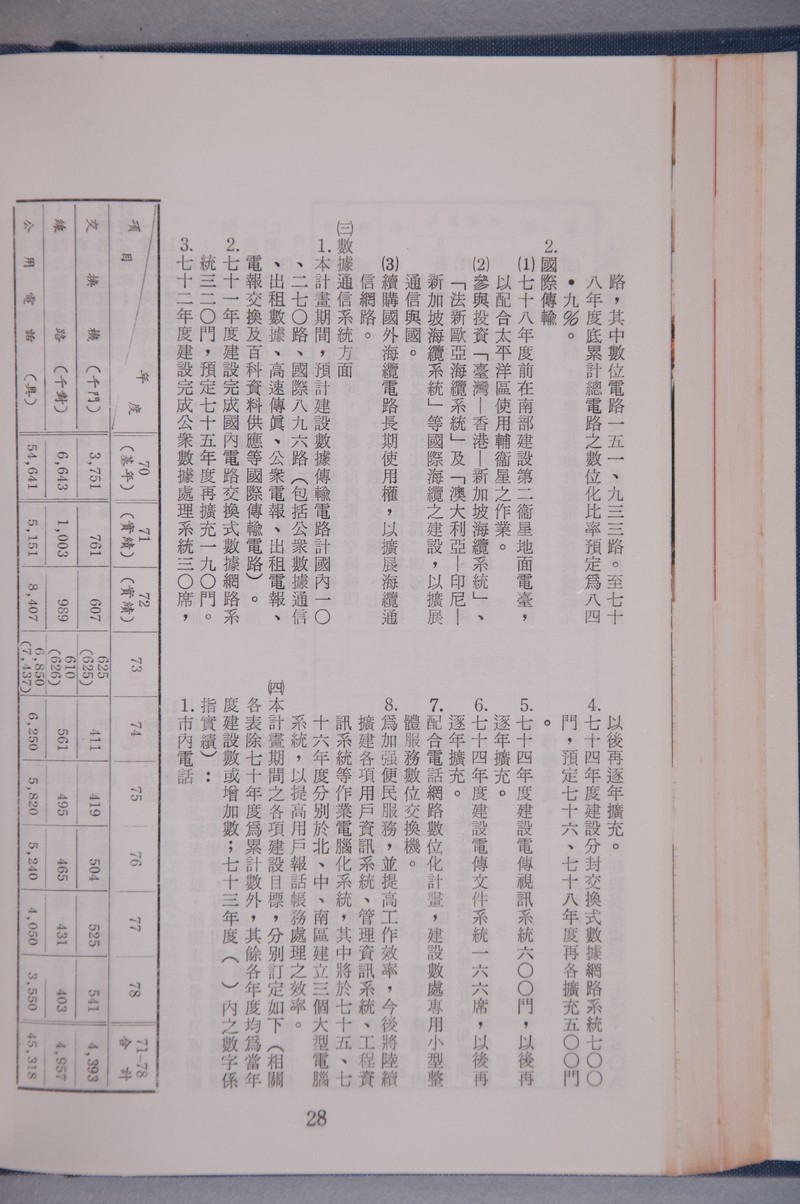 路，其中數位電路一五一、九三三路。至七十
八年度底累計總電路之數位化比率預定爲八四
•九%。
2.國際傳輸
(1)七十八年度前在南部建設第二衞星地面電臺，
以配合太平洋區使用輔衞星之作業。
(2)參與投資「臺灣—香港—新加坡海纜系統」、
「法新歐亞海纜系統」及「澳大利亞—印尼—
新加坡海纜系統」等國際海纜之建設，以擴展
通信與國。
(3)續購國外海纜電路長期使用權，以擴展海纜通
信網路。
㈢數據通信系統方面
1.本計畫期間，預計建設數據傳輸電路計國內一〇
、二七〇路、國際八九六路（包括公衆數據通信
、出租數據、高速傳眞、公衆電報、出租電報、
電報交換及百科資料供應等國際傳輸電路）。
2.七十一年度建設完成國內電路交換式數據網路系
統三二〇門，預定七十五年度再擴充一九〇門。
3.七十二年度建設完成公衆數據處理系統三〇席，
以後再逐年擴充。
4.七十四年度建設分封交換式數據網路系統七〇〇
門，預定七十六、七十八年度再各擴充五〇〇門
。
5.七十四年度建設電傳視訊系統六〇〇門，以後再
逐年擴充。
6.七十四年度建設電傳文件系統一六六席，以後再
逐年擴充。
7.配合電話網路數位化計畫，建設數處專用小型整
體服務數位交換機。
8.爲加强便民服務，並提高工作效率，今後將陸續
擴建各項用戶資訊系統、管理資訊系統、工程資
訊系統等作業電腦化系統，其中將於七十五、七
十六年度分別於北、中、南區建立三個大型電腦
系統，以提高用戶報話帳務處理之效率。
㈣本計畫期間之各項建設目標，分別訂定如下（相關
各表除七十年度爲累計數外，其餘各年度均爲當年
度建設數或增加數；七十三年度（　）內之數字係
指實績）：
1.市內電話
項目 年度 70（基年） 71（實績） 72（實績） 73 74 75 76 77 78 71-78合計
交換機（千門） 3,751 761 607 625(625) 411 419 504 525 541 4,393
線路（千對） 6,643 1,003 989 610(626) 561 495 465 431 403 4,957
公用電話（具） 54,641 5,151 8,407 6,850(7,437) 6,250 5,820 5,240 4,050 3,550 45,318
28